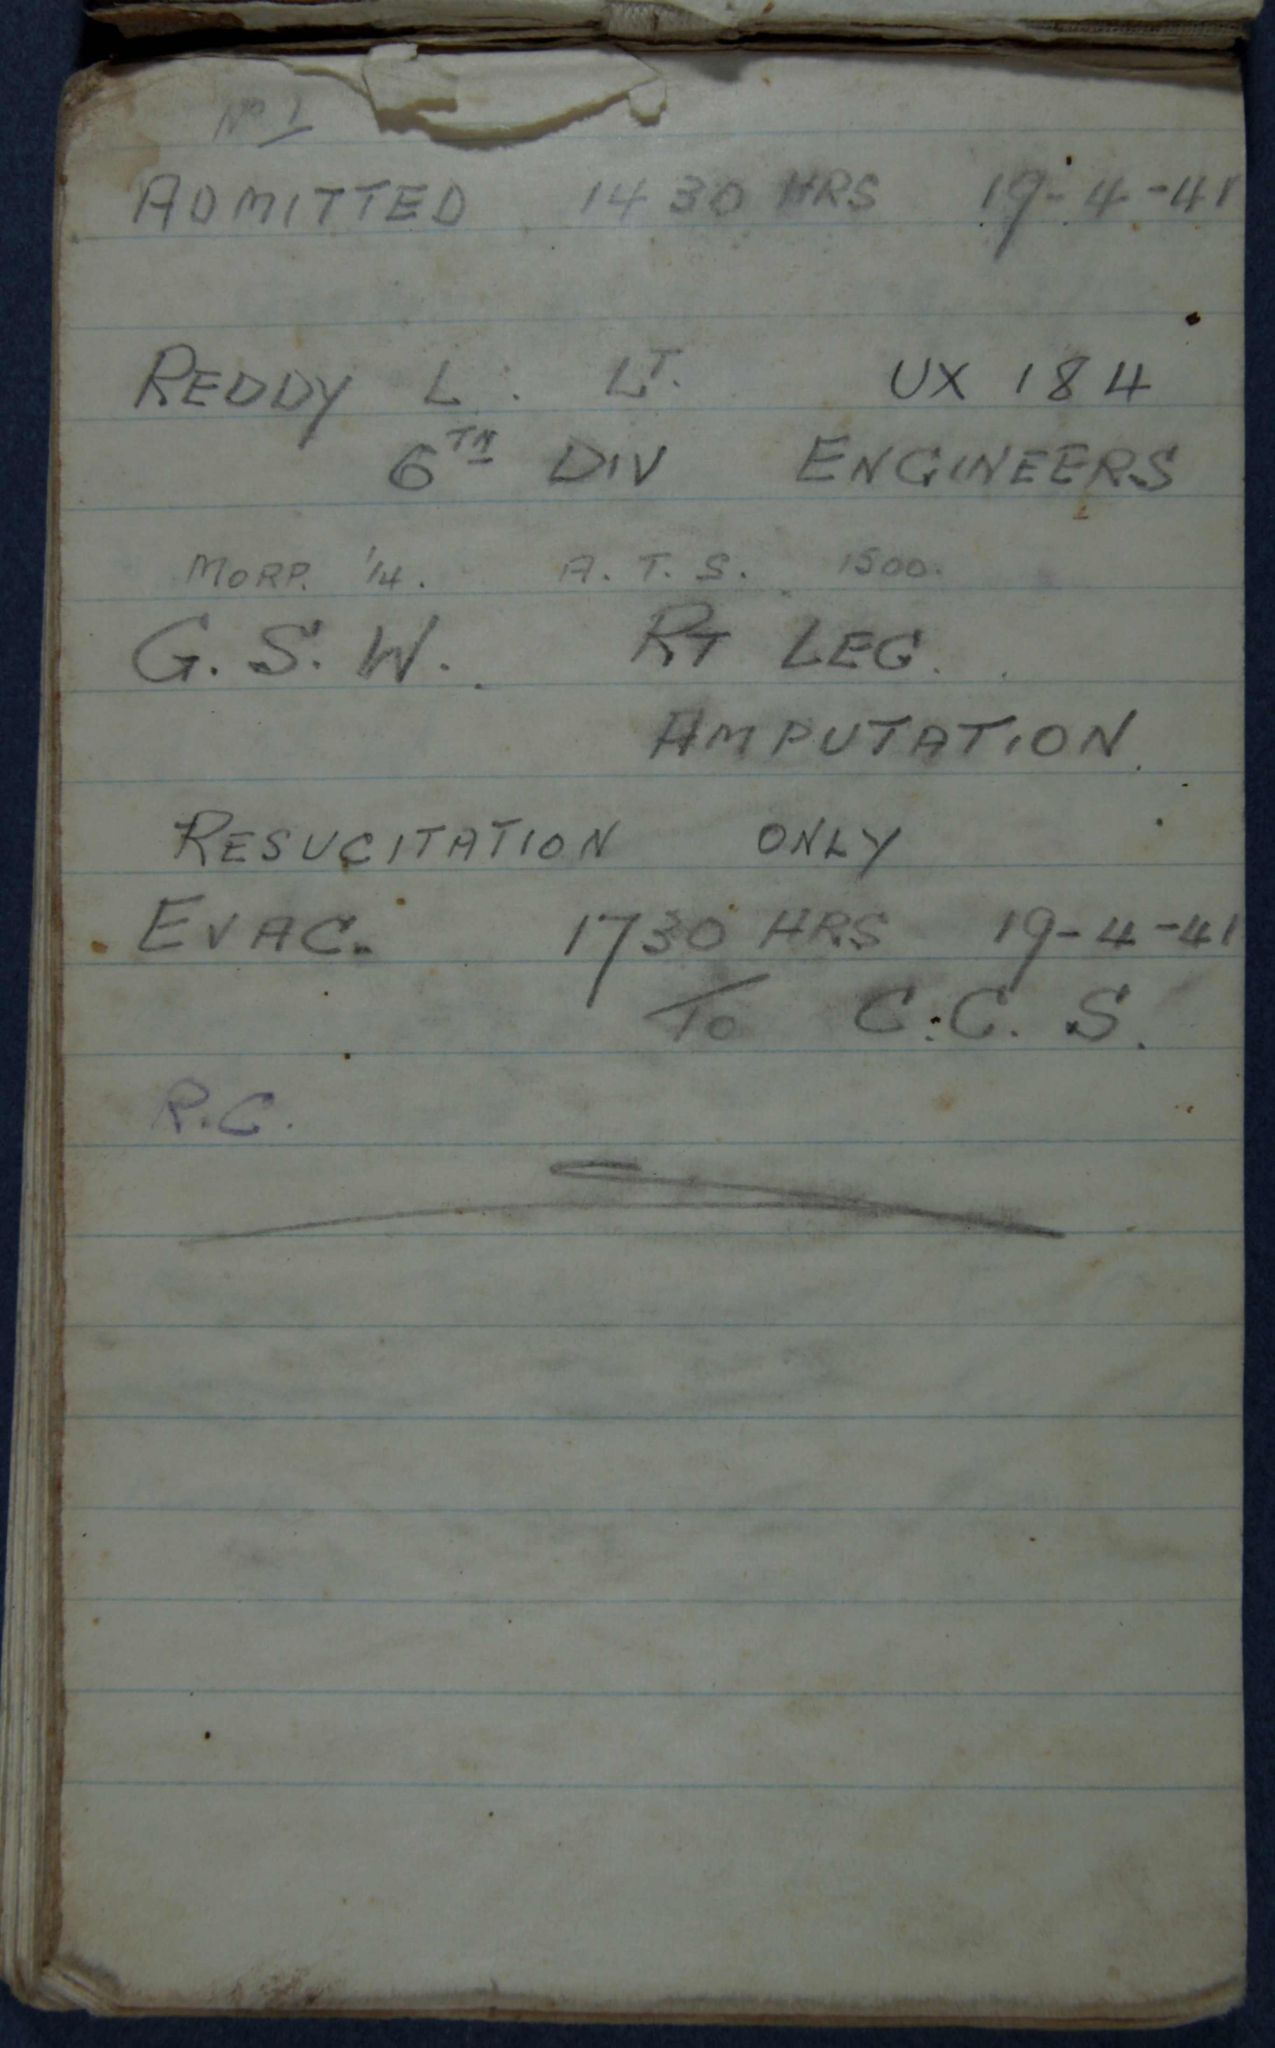 No 1
ADMITTED 1430 HRS 19-4-41
REDDY L. LT. UX 184
6TH DIV ENGINEERS
MORP. 1/4. A.T.S. 1500.
G.S.W. RT LEG.
AMPUTATION.
RESUCITATION ONLY
EVAC. 1730 HRS 19-4-41
TO C.C.S.
R.C.